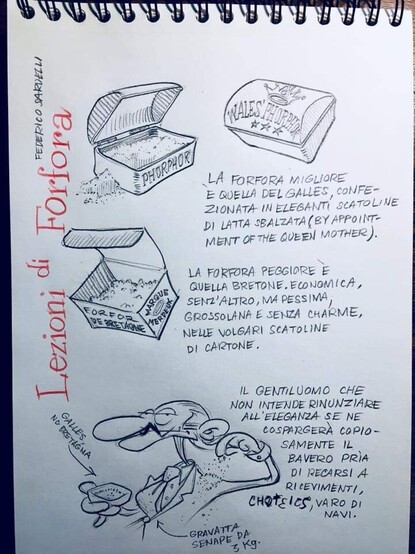 FEDERICO SARDELLI
Lezioni di Forfora
PHORPHOR
WALES' PHORPHOR
LA FORFORA MIGLIORE
È QUELLA DEL GALLES, CONFE-
ZIONATA IN ELEGANTI SCATOLINE
DI LATTA SBALZATA (BY APPOINT-
MENT OF THE QUEEN MOTHER).
FORFOR
DE BRETAGNE
MARQUE
LA FORFORA PEGGIORE È
QUELLA BRETONE. ECONOMICA,
SENZ'ALTRO, MA PESSIMA,
GROSSOLANA E SENZA CHARME,
NELLE VOLGARI SCATOLINE
DI CARTONE.
IL GENTILUOMO CHE
NON INTENDE RINUNZIARE
ALL'ELEGANZA SE NE
COSPARGERÀ COPIO-
SAMENTE IL
BAVERO PRIA
DI RECARSI A
RICEVIMENTI,
VARO DI
NAVI.
GALLES
NO BRETAGNA
GRAVATTA
SENAPE DA
3 KG.